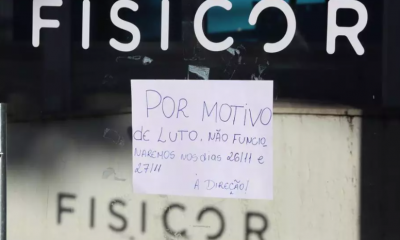 FISICOR
POR MOTIVO
DE LUTO, NÃO FUNCIO
NAREMOS NOS DIAS 26/11 e
27/11
A DIREÇÃO!
FISICOR